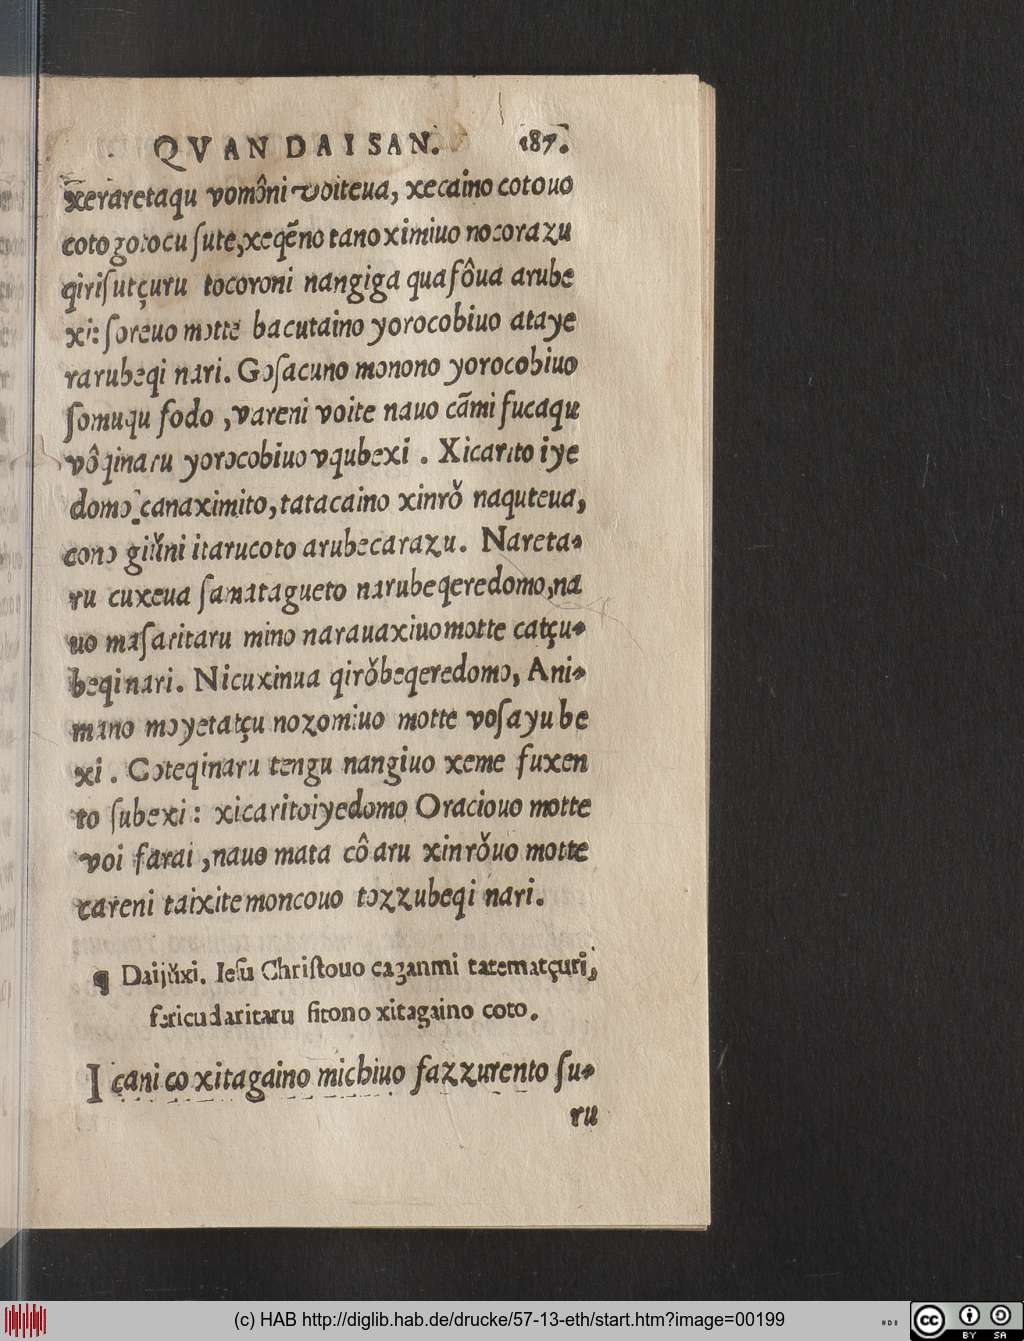 QVAN DAI SAN. 187.
xeraretaqu vomôni voiteua, xecaino cotouo
coto gotocu ſute, xeqẽno tanoximiuo nocorazu
qiriſutçuru tocoroni nangiga quafôua arube
xi: ſoreuo motte bacutaino yorocobiuo ataye
rarubeqi nari. Goſacuno monono yorocobiuo
ſomuqu fodo, vareni voite nauo cãmi fucaqu
vôqinaru yorocobiuo vqubexi. Xicarito iye
domo canaximito, tatacaino xinrǒ naquteua,
cono giǔni itarucoto arubecarazu. Nareta-
ru cuxeua ſamatagueto narubeqeredomo, na
uo maſaritaru mino narauaxiuo motte catçu-
beqi nari. Nicuxinua qirǒbeqeredomo, Ani-
mano moyetatçu nozomiuo motte voſayube
xi. Coteqinaru tengu nangiuo xeme fuxen
to ſubexi: xicaritoiyedomo Oraciouo motte
voi farai, nauo mata côaru xinrǒuo motte
careni taixite moncouo tozzubeqi nari.
¶ Daijǔxi. Ieſu Chriſtouo cazanmi tatematçuri,
fericudaritaru fitono xitagaino coto.
Icani co xitagaino michiuo fazzurento ſu-
ru
(c) HAB http://diglib.hab.de/drucke/57-13-eth/start.htm?image=00199
cc BY SA